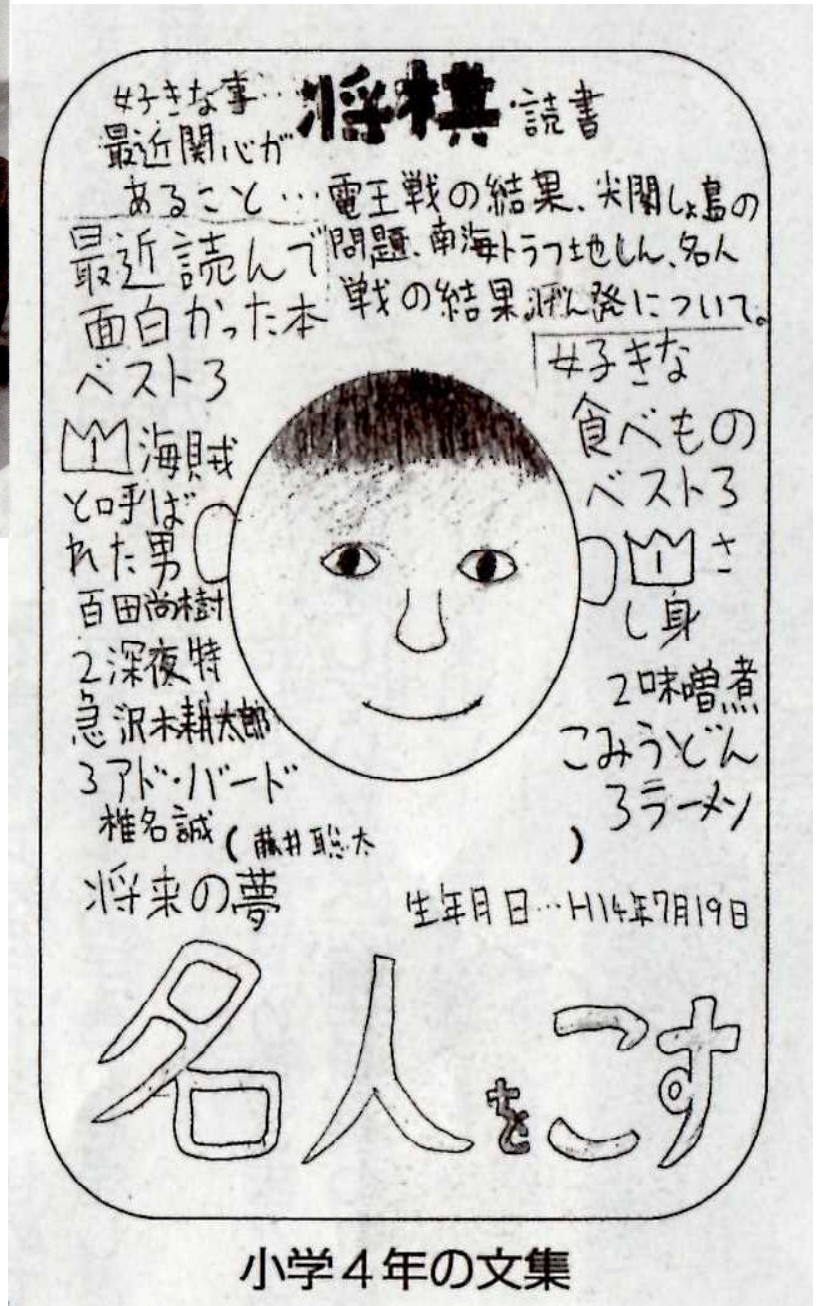 好きな事…将棋・読書
最近関心が
あること…電王戦の結果、尖閣しょ島の
問題、南海トラフ地しん、名人
戦の結果、げん発について。
最近読んで
面白かった本
ベスト3
1海賊
と呼ば
れた男
百田尚樹
2深夜特
急 沢木耕太郎
3アド・バード
椎名誠
好きな
食べもの
ベスト3
1さ
し身
2味噌煮
こみうどん
3ラーメン
(藤井聡太)
生年月日…H14年7月19日
将来の夢
名人をこす
小学4年の文集